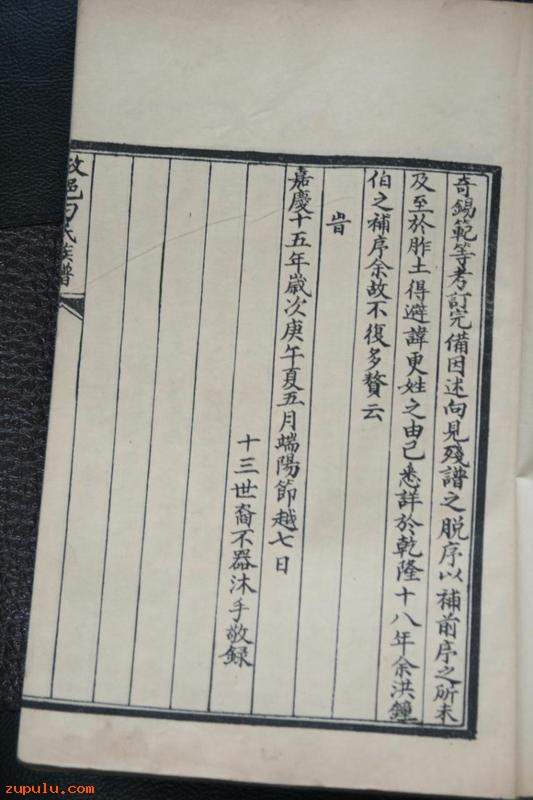 奇錫範等考訂完備因述向見殘譜之脱序以補前序之所未
及至於胙土得避諱更姓之由已悉詳於乾隆十八年余洪鐘
伯之補序余故不復多贅云
旹
嘉慶十五年歲次庚午夏五月端陽節越七日
十三世裔不器沐手敬録
邑 氏族譜
zupulu.com